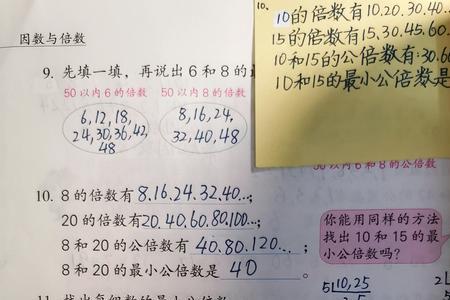 因数与倍数
10.
10的倍数有10.20.30.40...
15的倍数有15.30.45.60.
10和15的公倍数有:30.6
10和15的最小公倍数是
9. 先填一填，再说出 6 和 8 的
50 以内 6 的倍数 50 以内 8 的倍数
6,12,18,
24,30,36,42,
48
8,16,24,
32,40,48
50以内 6 和 8 的公倍数
10. 8 的倍数有8.16.24.32.40...;
20 的倍数有20.40.60.80.100...;
8 和 20 的公倍数有 40.80.120...;
8 和 20 的最小公倍数是 40 。
你能用同样的方法
找出 10 和 15 的最
小公倍数吗?
5 10,25